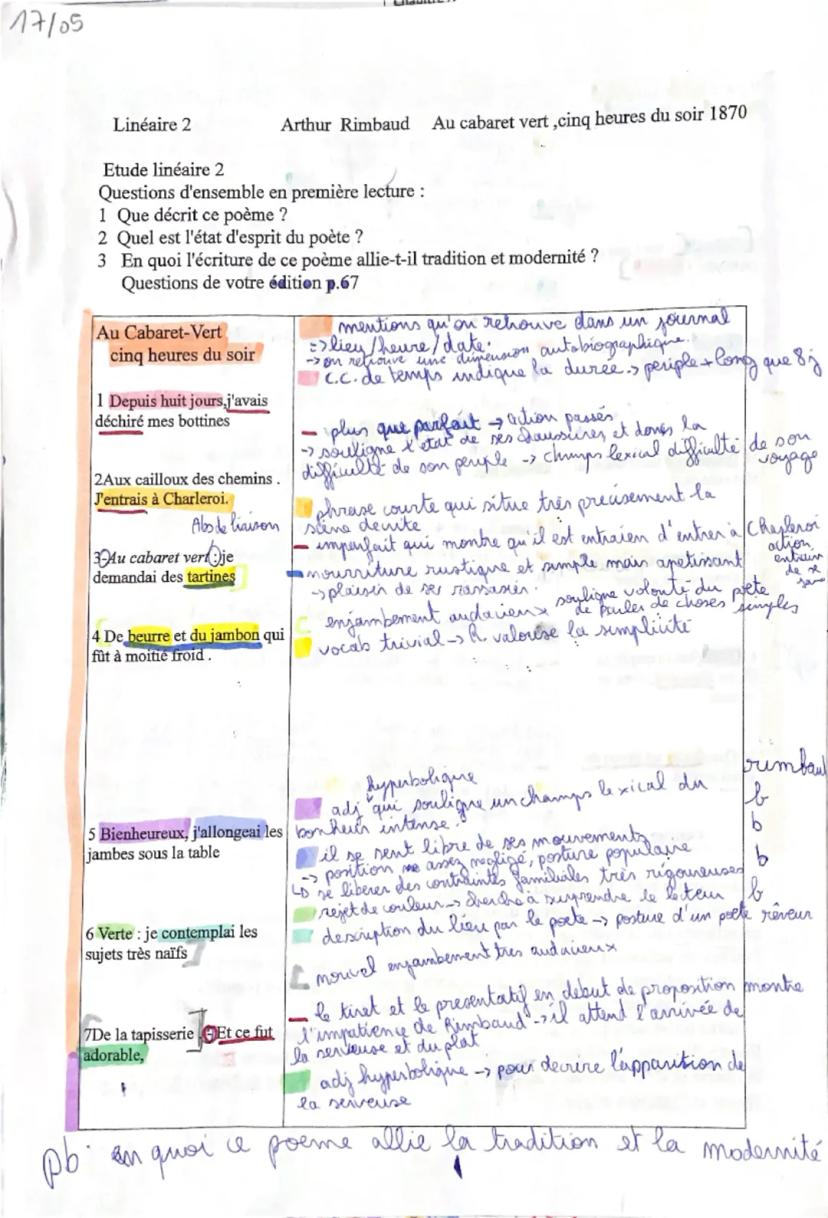 17/05
Linéaire 2 Arthur Rimbaud Au cabaret vert ,cinq heures du soir 1870
Etude linéaire 2
Questions d'ensemble en première lecture :
1 Que décrit ce poème ?
2 Quel est l'état d'esprit du poète ?
3 En quoi l'écriture de ce poème allie-t-il tradition et modernité ?
Questions de votre édition p.67
Au Cabaret-Vert
cinq heures du soir
mentions qu'on retrouve dans un journal
=> lieu/heure/date.
→ on retrouve une dimension autobiographique.
C.C. de temps indique la durée → periple + long que 8j
1 Depuis huit jours,j'avais
déchiré mes bottines
plus que parfait → action passés
→ souligne l'état de ses chaussures et donc la
difficulté de son periple → champs lexical difficulté de son
voyage
2Aux cailloux des chemins .
J'entrais à Charleroi.
phrase courte qui situe très précisement la
scène décrite
Abs de liaison
imparfait qui montre qu'il est entraien d'entrer à Charleroi
action
entrain
de se
3-Au cabaret vert : je
demandai des tartines
nourriture rustique et simple mais apetissant
→ plaisir de se rassasier.
enjambement audavieux souligne volonté du poète
de parler de choses simples
4 De beurre et du jambon qui
fût à moitié froid .
vocab trivial → R. valorise la simplicité
hyperbolique
adj qui souligne un champs lexical du
bonheur intense.
b
b
b
b
5 Bienheureux, j'allongeai les
jambes sous la table
il se sent libre de ses mouvements
→ position assez negligé, posture populaire
↳ se libérer des contraintes familiales très rigoureuses
rejet de couleur → cherche à surprendre le lecteur
6 Verte : je contemplai les
sujets très naïfs
description du lieu par le poete → posture d'un poete rêveur
nouvel enjambement tres audavieux
7De la tapisserie .-Et ce fut
adorable,
le tiret et le presentatif en debut de proposition montre
l'impatience de Rimbaud → il attend l'arrivée de
la serveuse et du plat
adj hyperbolique → pour decrire l'apparition de
la serveuse
pb : en quoi ce poeme allie la tradition et la modernité